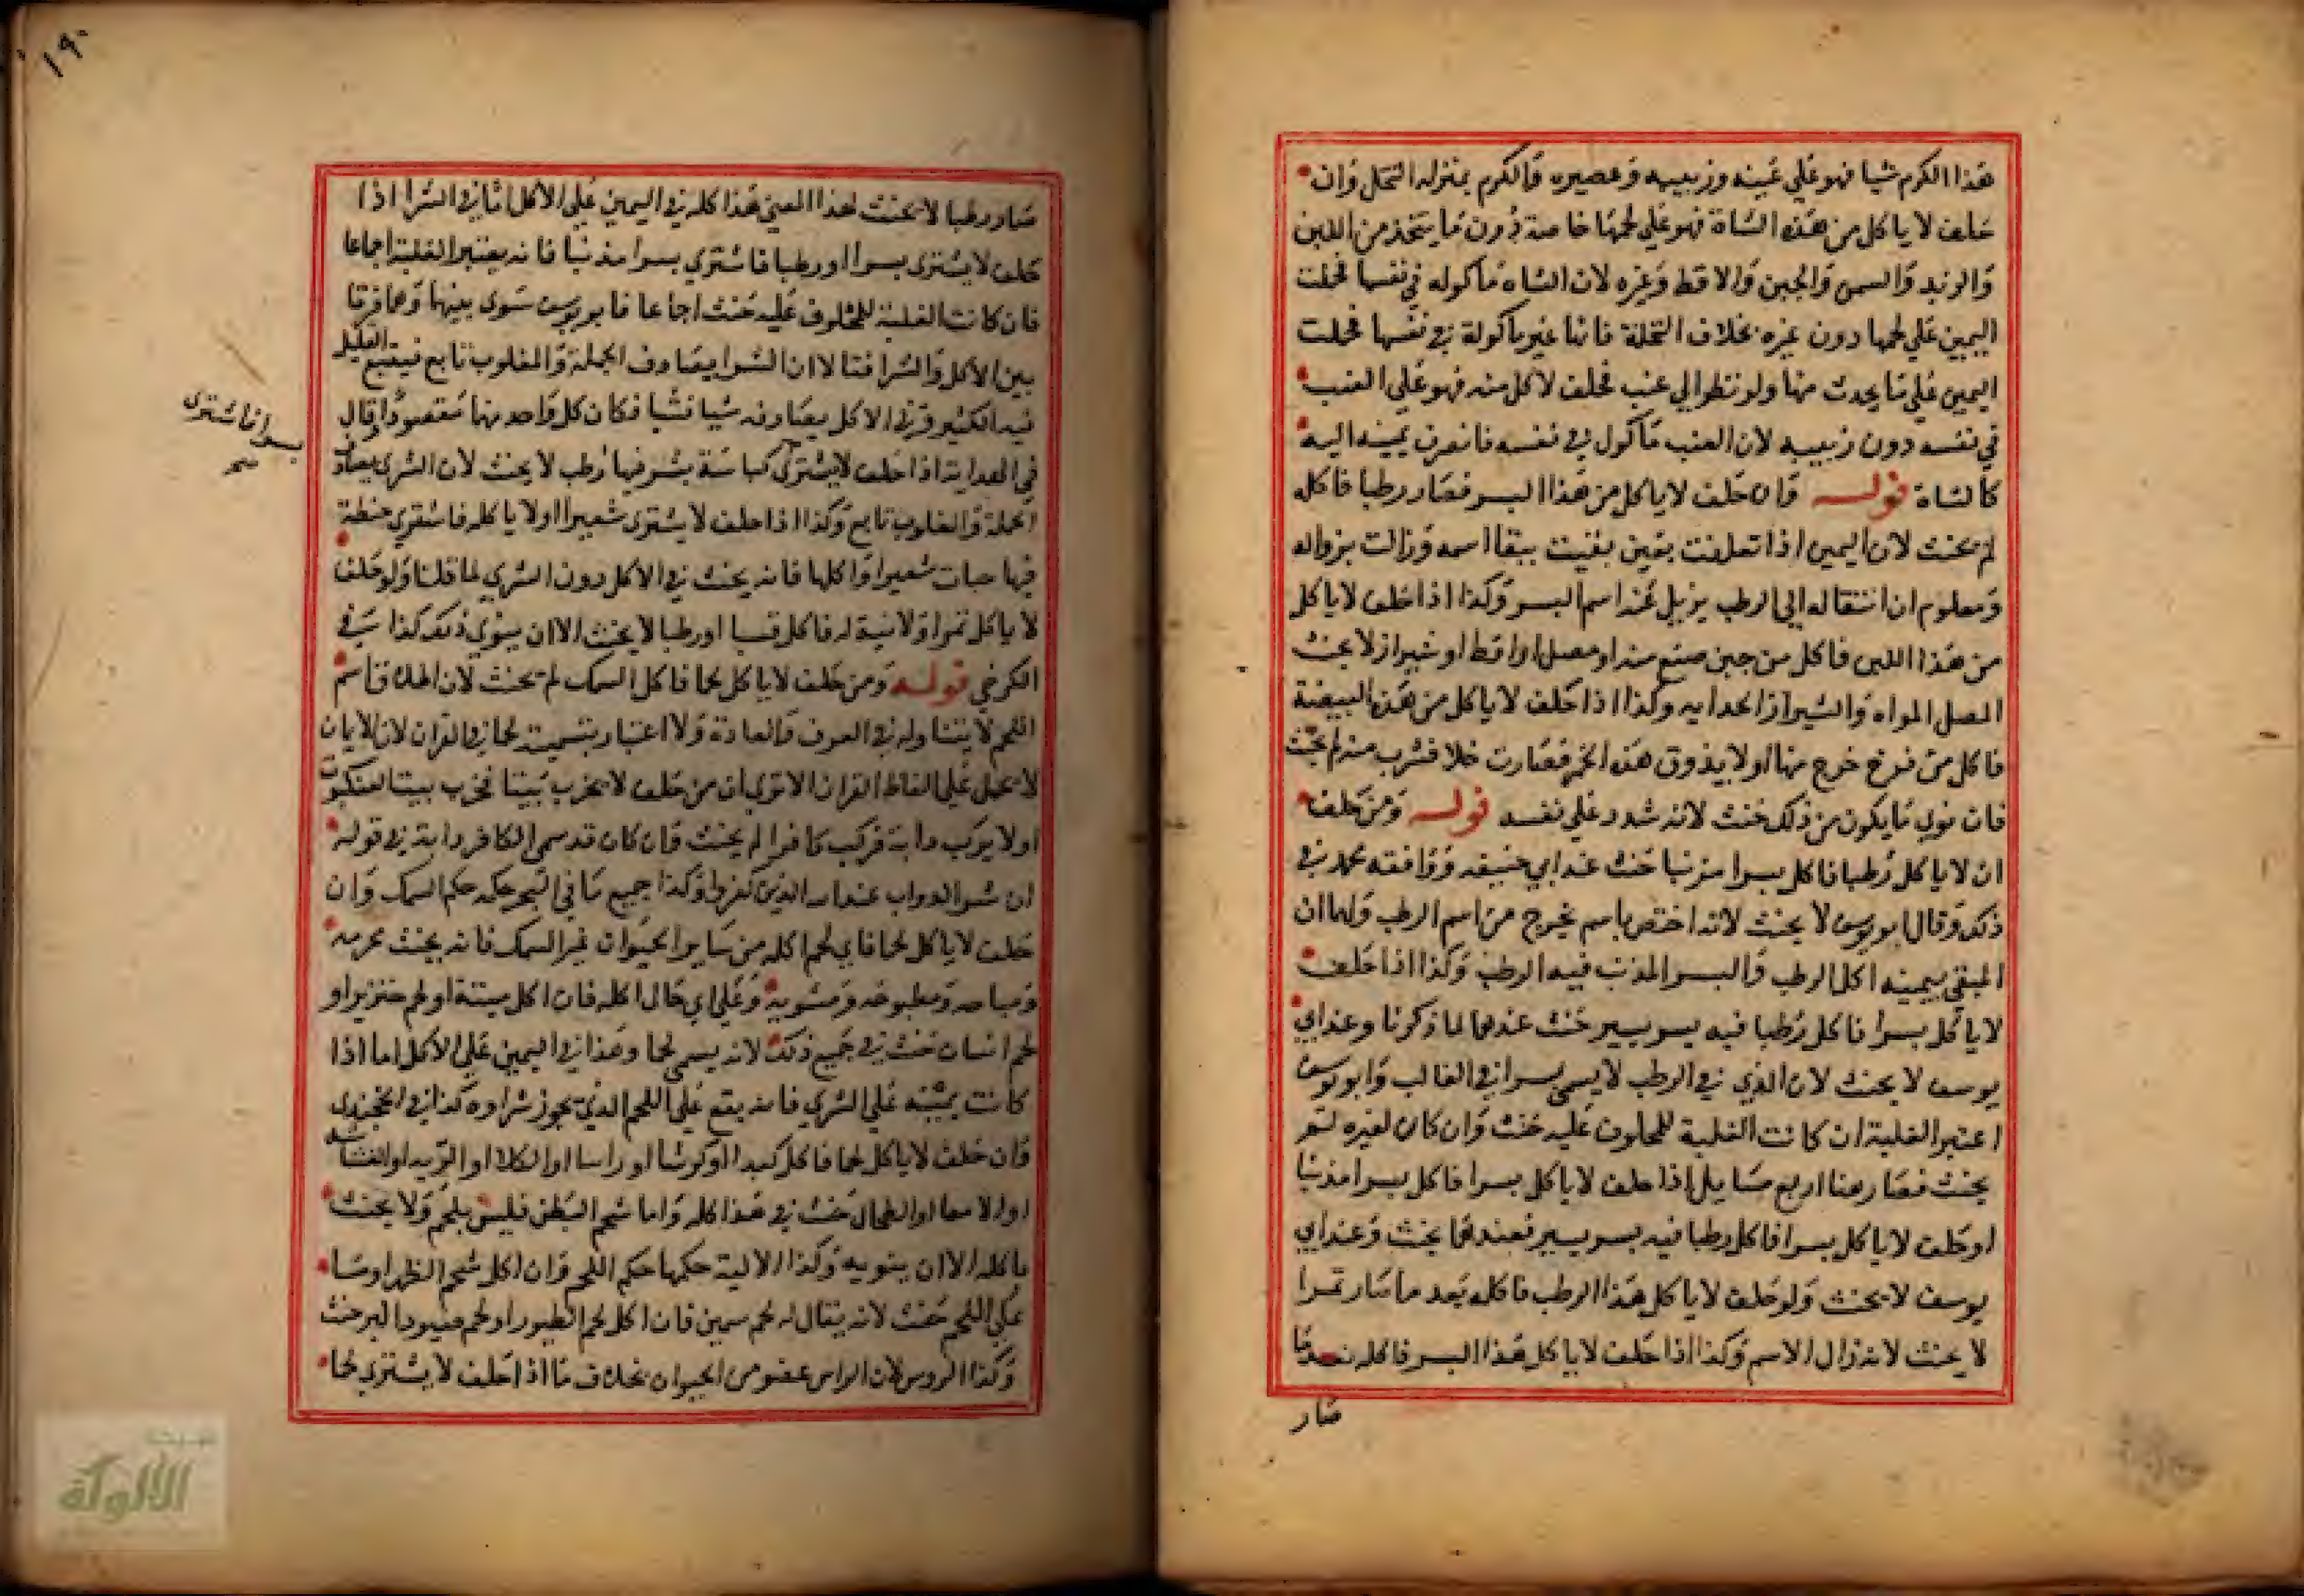 هذا الكرم شيا فهو علي عينه وزبيبه وعصيره والكرم بمنزله النخل وان
حلف لا ياكل من هذه الشاة فهو علي لحمها خاصة دون ما يتخذ من اللبن
والزبد والسمن والجبن والاقط وغيره لان الشاه ماكوله في نفسها فحملت
اليمين علي لحمها دون غيره بخلاف النخلة فانها غير ماكولة في نفسها فحملت
اليمين علي ما يحدث منها ولو نظر الي عنب فحلف لا اكل منه فهو علي العنب
في نفسه دون زبيبه لان العنب ماكول في نفسه فانصرفت يمينه اليه
كالشاة قوله وان حلف لا ياكل من هذا البسر فصار رطبا فاكله
لم يحنث لان اليمين اذا تعلقت بعين بقيت ببقا اسمه وزالت بزواله
ومعلوم ان انتقاله الي الرطب يزيل عنه اسم البسر وكذا اذا حلف لا ياكل
من هذا اللبن فاكل من جبن صنع منه او مصل او اقط او شيراز لا يحنث
المصل المواه والشيراز الحدايه وكذا اذا حلف لا ياكل من هذه البيضة
فاكل من فرخ خرج منها او لا يذوق هذه الخمر فصارت خلا فشرب منه لم يحنث
فان نوي ما يكون من ذلك حنث لانه شدد علي نفسه قوله ومن حلف
ان لا ياكل رطبا فاكل بسرا مذنبا حنث عند ابي حنيفه ووافقه محمد في
ذلك وقال ابو يوسف لا يحنث لانه اختص باسم يخرج من اسم الرطب ولهما ان
المبقي بيمينه اكل الرطب والبسر المذنب فيه الرطب وكذا اذا حلف
لا ياكل بسرا فاكل رطبا فيه بسر يسير حنث عندهما لما ذكرنا وعند ابي
يوسف لا يحنث لان الذي في الرطب لا يسمي بسرا في الغالب وابو يوسف
اعتبر الغلبة ان كانت الغلبة للمحلوف عليه حنث وان كان لغيره لم
يحنث فصار هنا اربع مسايل اذا حلف لا ياكل بسرا فاكل بسرا مذنبا
او حلف لا ياكل بسرا فاكل رطبا فيه بسر يسير فعندهما يحنث وعند ابي
يوسف لا يحنث ولو حلف لا ياكل هذا الرطب فاكله بعد ما صار تمرا
لا يحنث لانه زال الاسم وكذا اذا حلف لا ياكل هذا البسر فاكله بعد ما
صار
١٩٠
صار رطبا لا يحنث لهذا المعني هذا كله في اليمين علي الاكل اما في الشرا اذا
حلف لا يشتري بسرا او رطبا فاشتري بسرا مذنبا فانه يعتبر الغلبة اجماعا
فان كانت الغلبة للمحلوف عليه حنث اجماعا فابو يوسف سوي بينهما وهما فرقا
بين الاكل والشرا فقالا ان الشرا يصادف الجملة والمغلوب تابع فيتبع القليل
فيه الكثير وفي الاكل يصادفه شيا فشيا فكان كل واحد منهما مقصودا وقال
بسرا فاشتري
صح
في الهداية اذا حلف لا يشتري كباسة بسر فيها رطب لا يحنث لان الشري يصادف
الجملة والمغلوب تابع وكذا اذا حلف لا يشتري شعيرا او لا ياكله فاشتري حنطة
فيها حبات شعير او اكلها فانه يحنث في الاكل دون الشري لما قلنا ولو حلف
لا ياكل تمرا ولا نية له فاكل قسبا او رطبا لا يحنث الا ان ينوي ذلك كذا في
الكرخي قوله ومن حلف لا ياكل لحما فاكل السمك لم يحنث لان اطلاق اسم
اللحم لا يتناوله في العرف والعادة ولا اعتبار بتسميته لحما في القران لان الايمان
لا تحمل علي الفاظ القران الا تري ان من حلف لا يخرب بيتا فخرب بيت العنكبوت
او لا يركب دابة فركب كافرا لم يحنث وان كان قد سمي الكافر دابة في قوله
ان شر الدواب عند الله الذين كفروا وكذا جميع ما في البحر حكمه حكم السمك وان
حلف لا ياكل لحما فاي لحم اكله من ساير الحيوان غير السمك فانه يحنث محرمه
ومباحه ومطبوخه ومشويه وعلي اي حال اكله فان اكل ميتة او لحم خنزير او
لحم انسان حنث في جميع ذلك لانه يسمي لحما وهذا في اليمين علي الاكل اما اذا
كانت يمينه علي الشري فانه يقع علي اللحم الذي يجوز شراوه كذا في الخجندي
وان حلف لا ياكل لحما فاكل كبدا او كرشا او راسا او الكلا او الريه
او الامعا او الطحال حنث في هذا كله واما شحم البطن فليس بلحم ولا يحنث
باكله الا ان ينويه وكذا الالية حكمها حكم الشحم وان اكل شحم الظهر او ما
علي اللحم حنث لانه يقال له لحم سمين فان اكل لحم الطيور او لحم صيود البر حنث
وكذا الروس لان الراس عضو من الحيوان بخلاف ما اذا حلف لا يشتري لحما
الألوكة